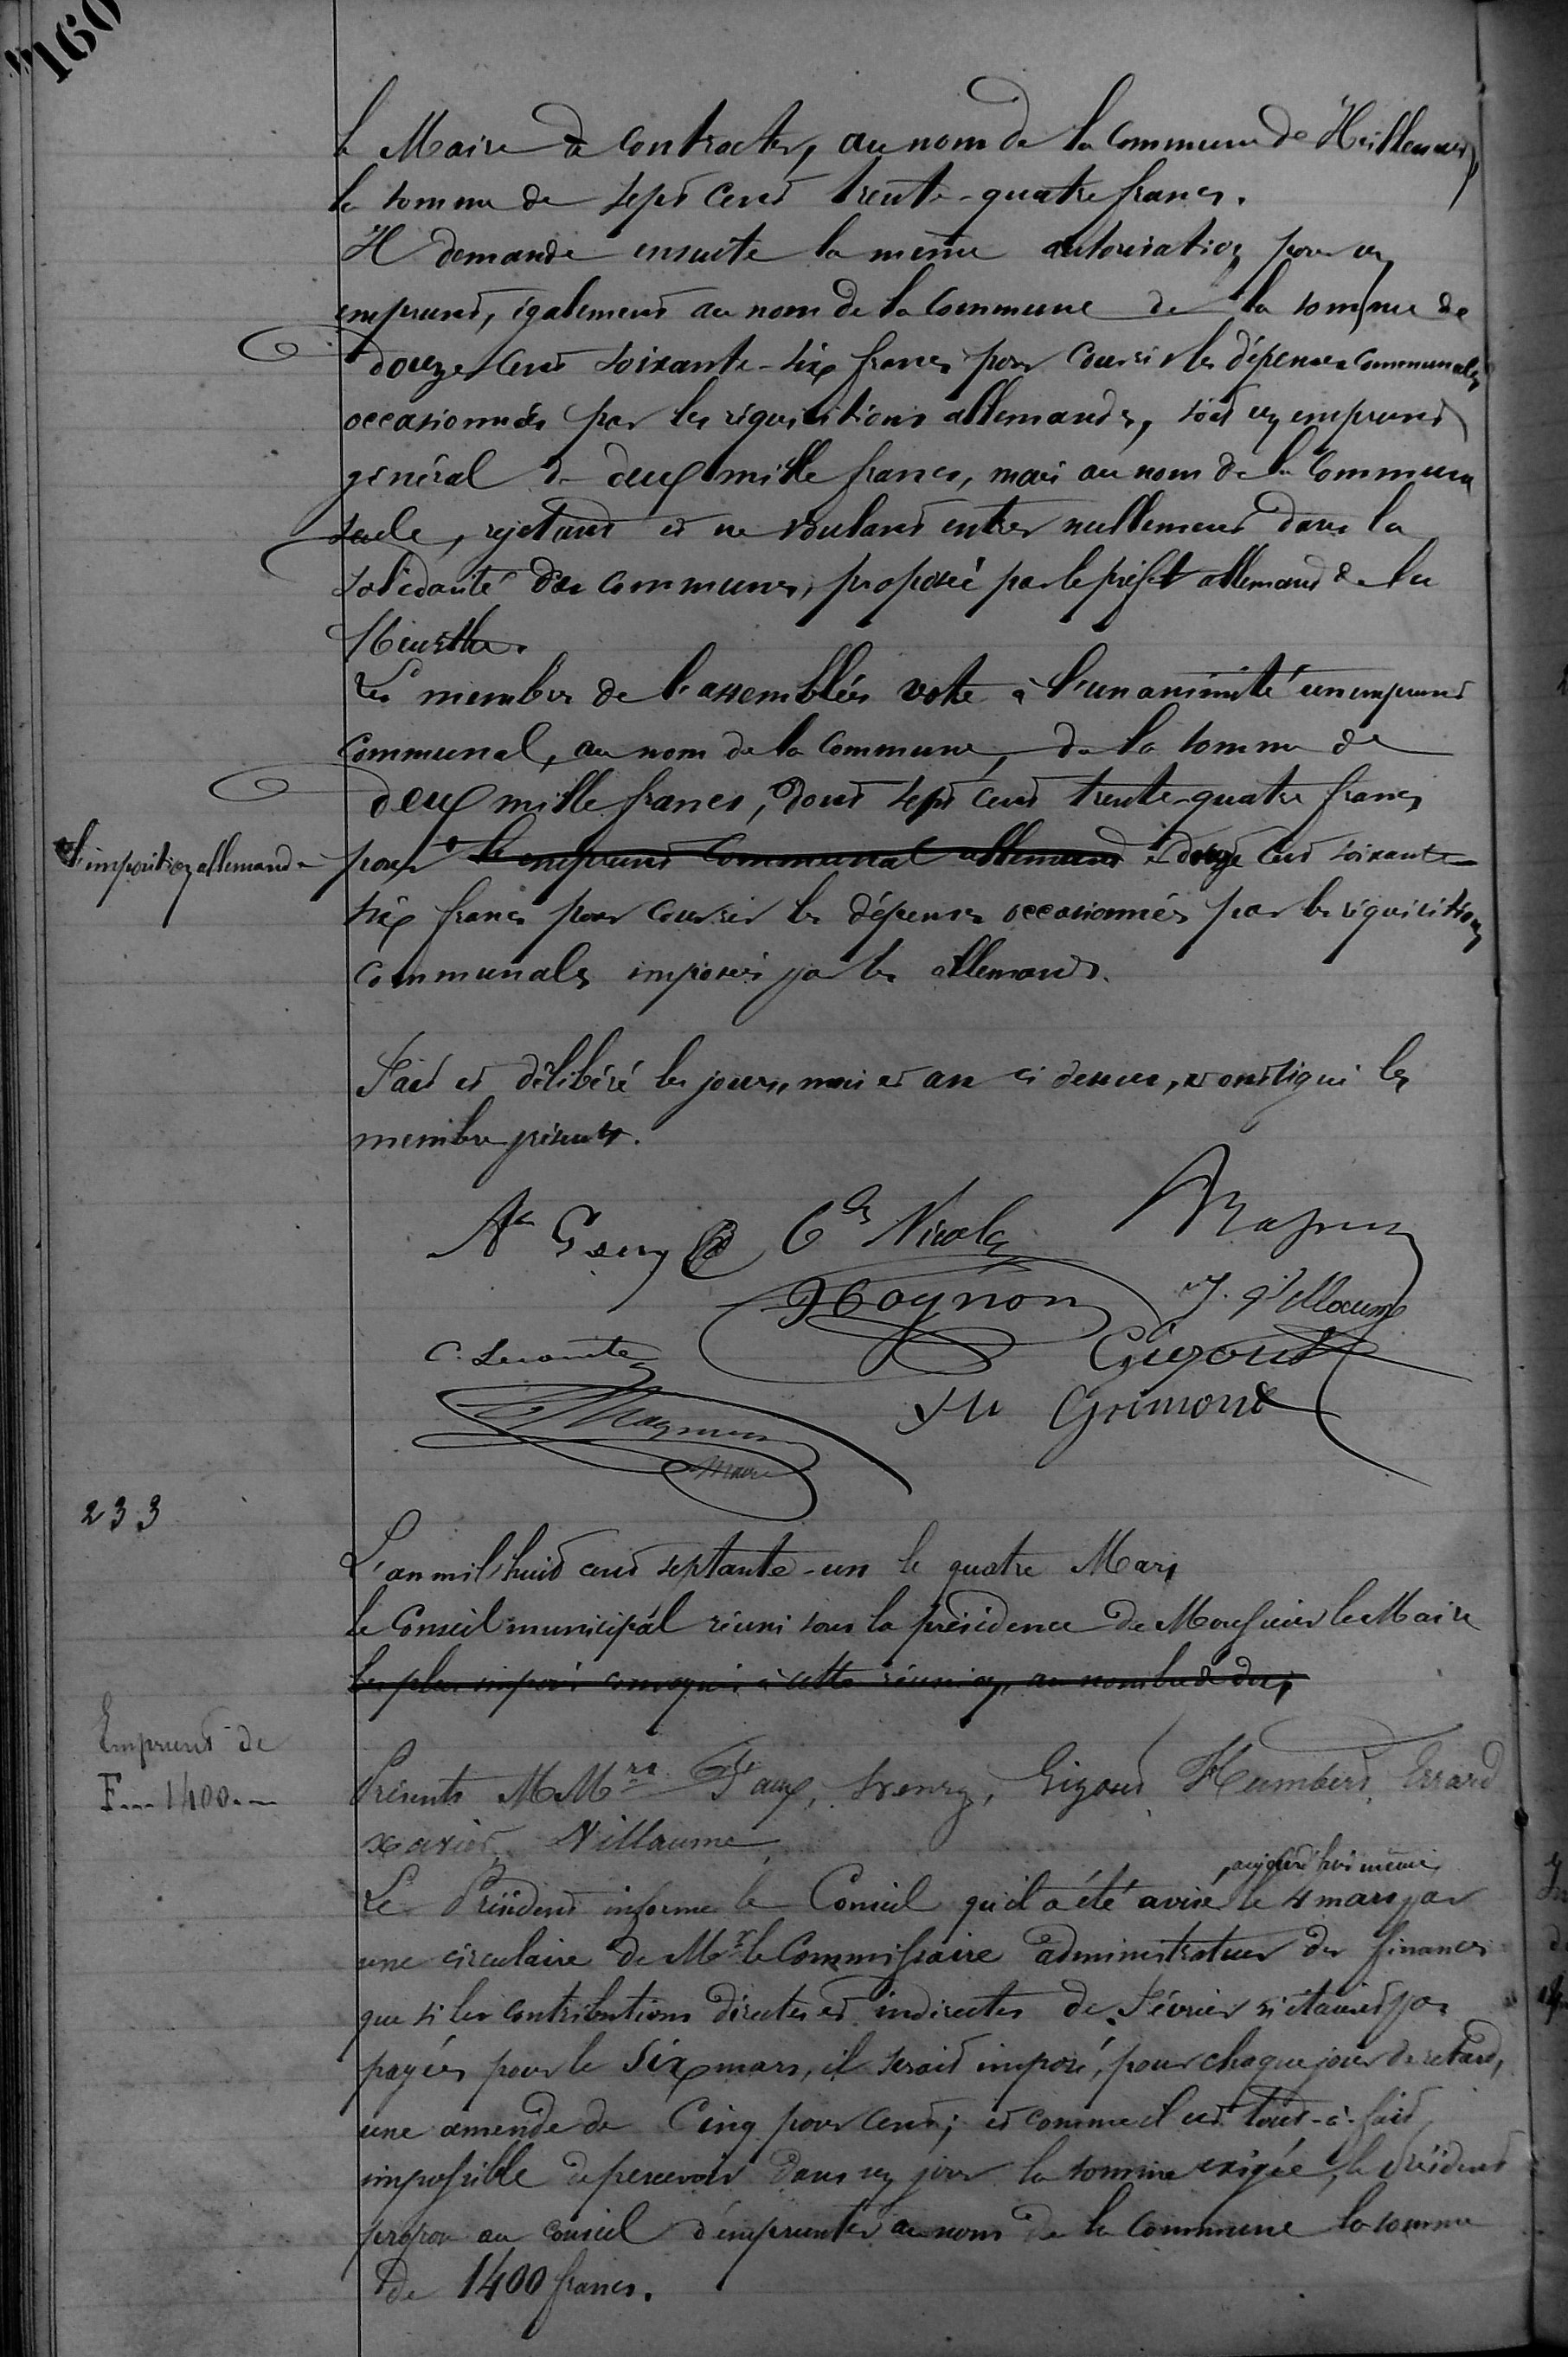 160
le Maire à contracter, au nom de la Commune de Heillemer,
la somme de sept cent trente-quatre francs.
Il demande ensuite la même autorisation pour un
emprunt, également au nom de la Commune de la somme de
douze cent soixante-six francs pour couvrir les dépenses communales
occasionnées par les réquisitions allemandes, soit un emprunt
général de deux mille francs, mais au nom de la Commune
seule, rejetant et ne voulant entrer nullement dans la
solidarité des communes, proposée par le préfet allemand de la
Meurthe.
Les membres de l'assemblées vote à l'unanimité un emprunt
communal, au nom de la commune, de la somme de
deux mille francs, dont sept cent trente-quatre francs
l'imposition allemande
pour le emprunt communal allemand et douze cent soixante
six francs pour couvrir les dépenses occasionnées par les réquisitions
communales imposées par les allemands.
Fait et délibéré les jours, mois et an ci dessus, et ont signé les
membres présents.
Nicolas
Hognon J. Villaume
C. Lecomte Gigout
Magnien
Maire
JM Grimont
233
L'an mil huit cent septante-un le quatre Mars
le Conseil municipal réuni sous la présidence de Monsieur le Maire
les plus imposés convoqués à cette réunion, au nombre de dix,
Emprunt de
F... 1400.-
Présents MMrs Henry, Gigout Humbert, Errard
Xavier, Villaume,
aujourd'hui même
Le Président informe le Conseil qu'il a été avisé le 4 mars par
une circulaire de Mr le Commissaire administrateur des finances
que si les contributions directes et indirectes de Février n'étaient pas
payées pour le Six mars, il serait imposé, pour chaque jour de retard,
une amende de Cinq pour cent; et comme il est tout-à-fait
impossible de percevoir dans un jour la somme exigée, le Président
propose au conseil d'emprunter au nom de la Commune la somme
de 1400 francs.